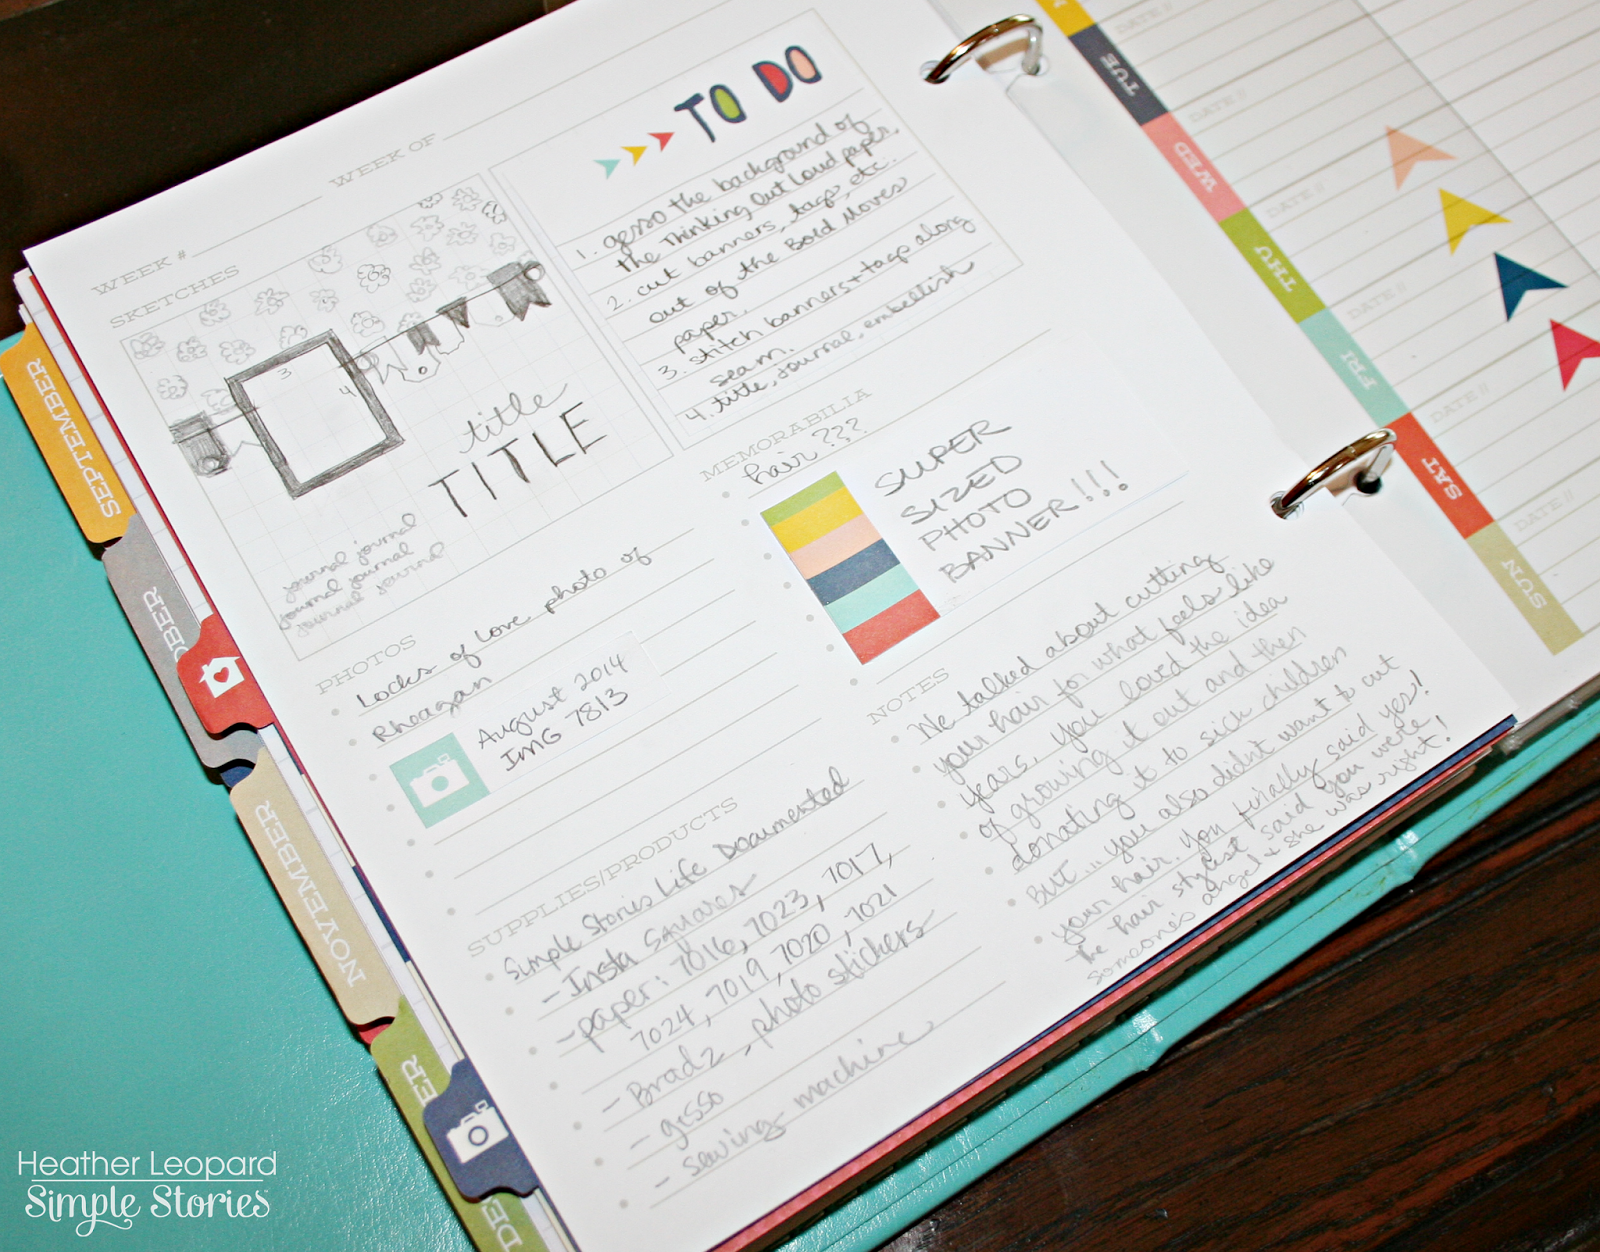 WEEK OF
WEEK #
SKETCHES
3
4
title
TITLE
journal journal
journal journal
journal journal
TO DO
1. gesso the background of
the Thinking Out Loud paper.
2. cut banners, tags, etc.
out of the Bold Moves
paper.
3. stitch banners + tags along
seam.
4. title, journal, embellish
MEMORABILIA
hair???
SUPER
SIZED
PHOTO
BANNER!!!
PHOTOS
Locks of Love photo of
Rheagan
August 2014
IMG 7813
SUPPLIES/PRODUCTS
Simple Stories Life Documented
- Insta Squares
- paper: 7016, 7023, 7017,
7024, 7019, 7020, 7021
- Bradz, photo stickers
- gesso
- sewing machine
NOTES
We talked about cutting
your hair for what feels like
years. You loved the idea
of growing it out and then
donating it to sick children
BUT... you also didn't want to cut
your hair. You finally said yes!
The hair stylist said you were
someone's angel & she was right!
SEPTEMBER
OBER
NOVEMBER
DE
ER
TUE
WED
THU
FRI
SAT
SUN
DATE //
DATE //
DATE //
DATE //
DATE //
DATE //
Heather Leopard
Simple Stories